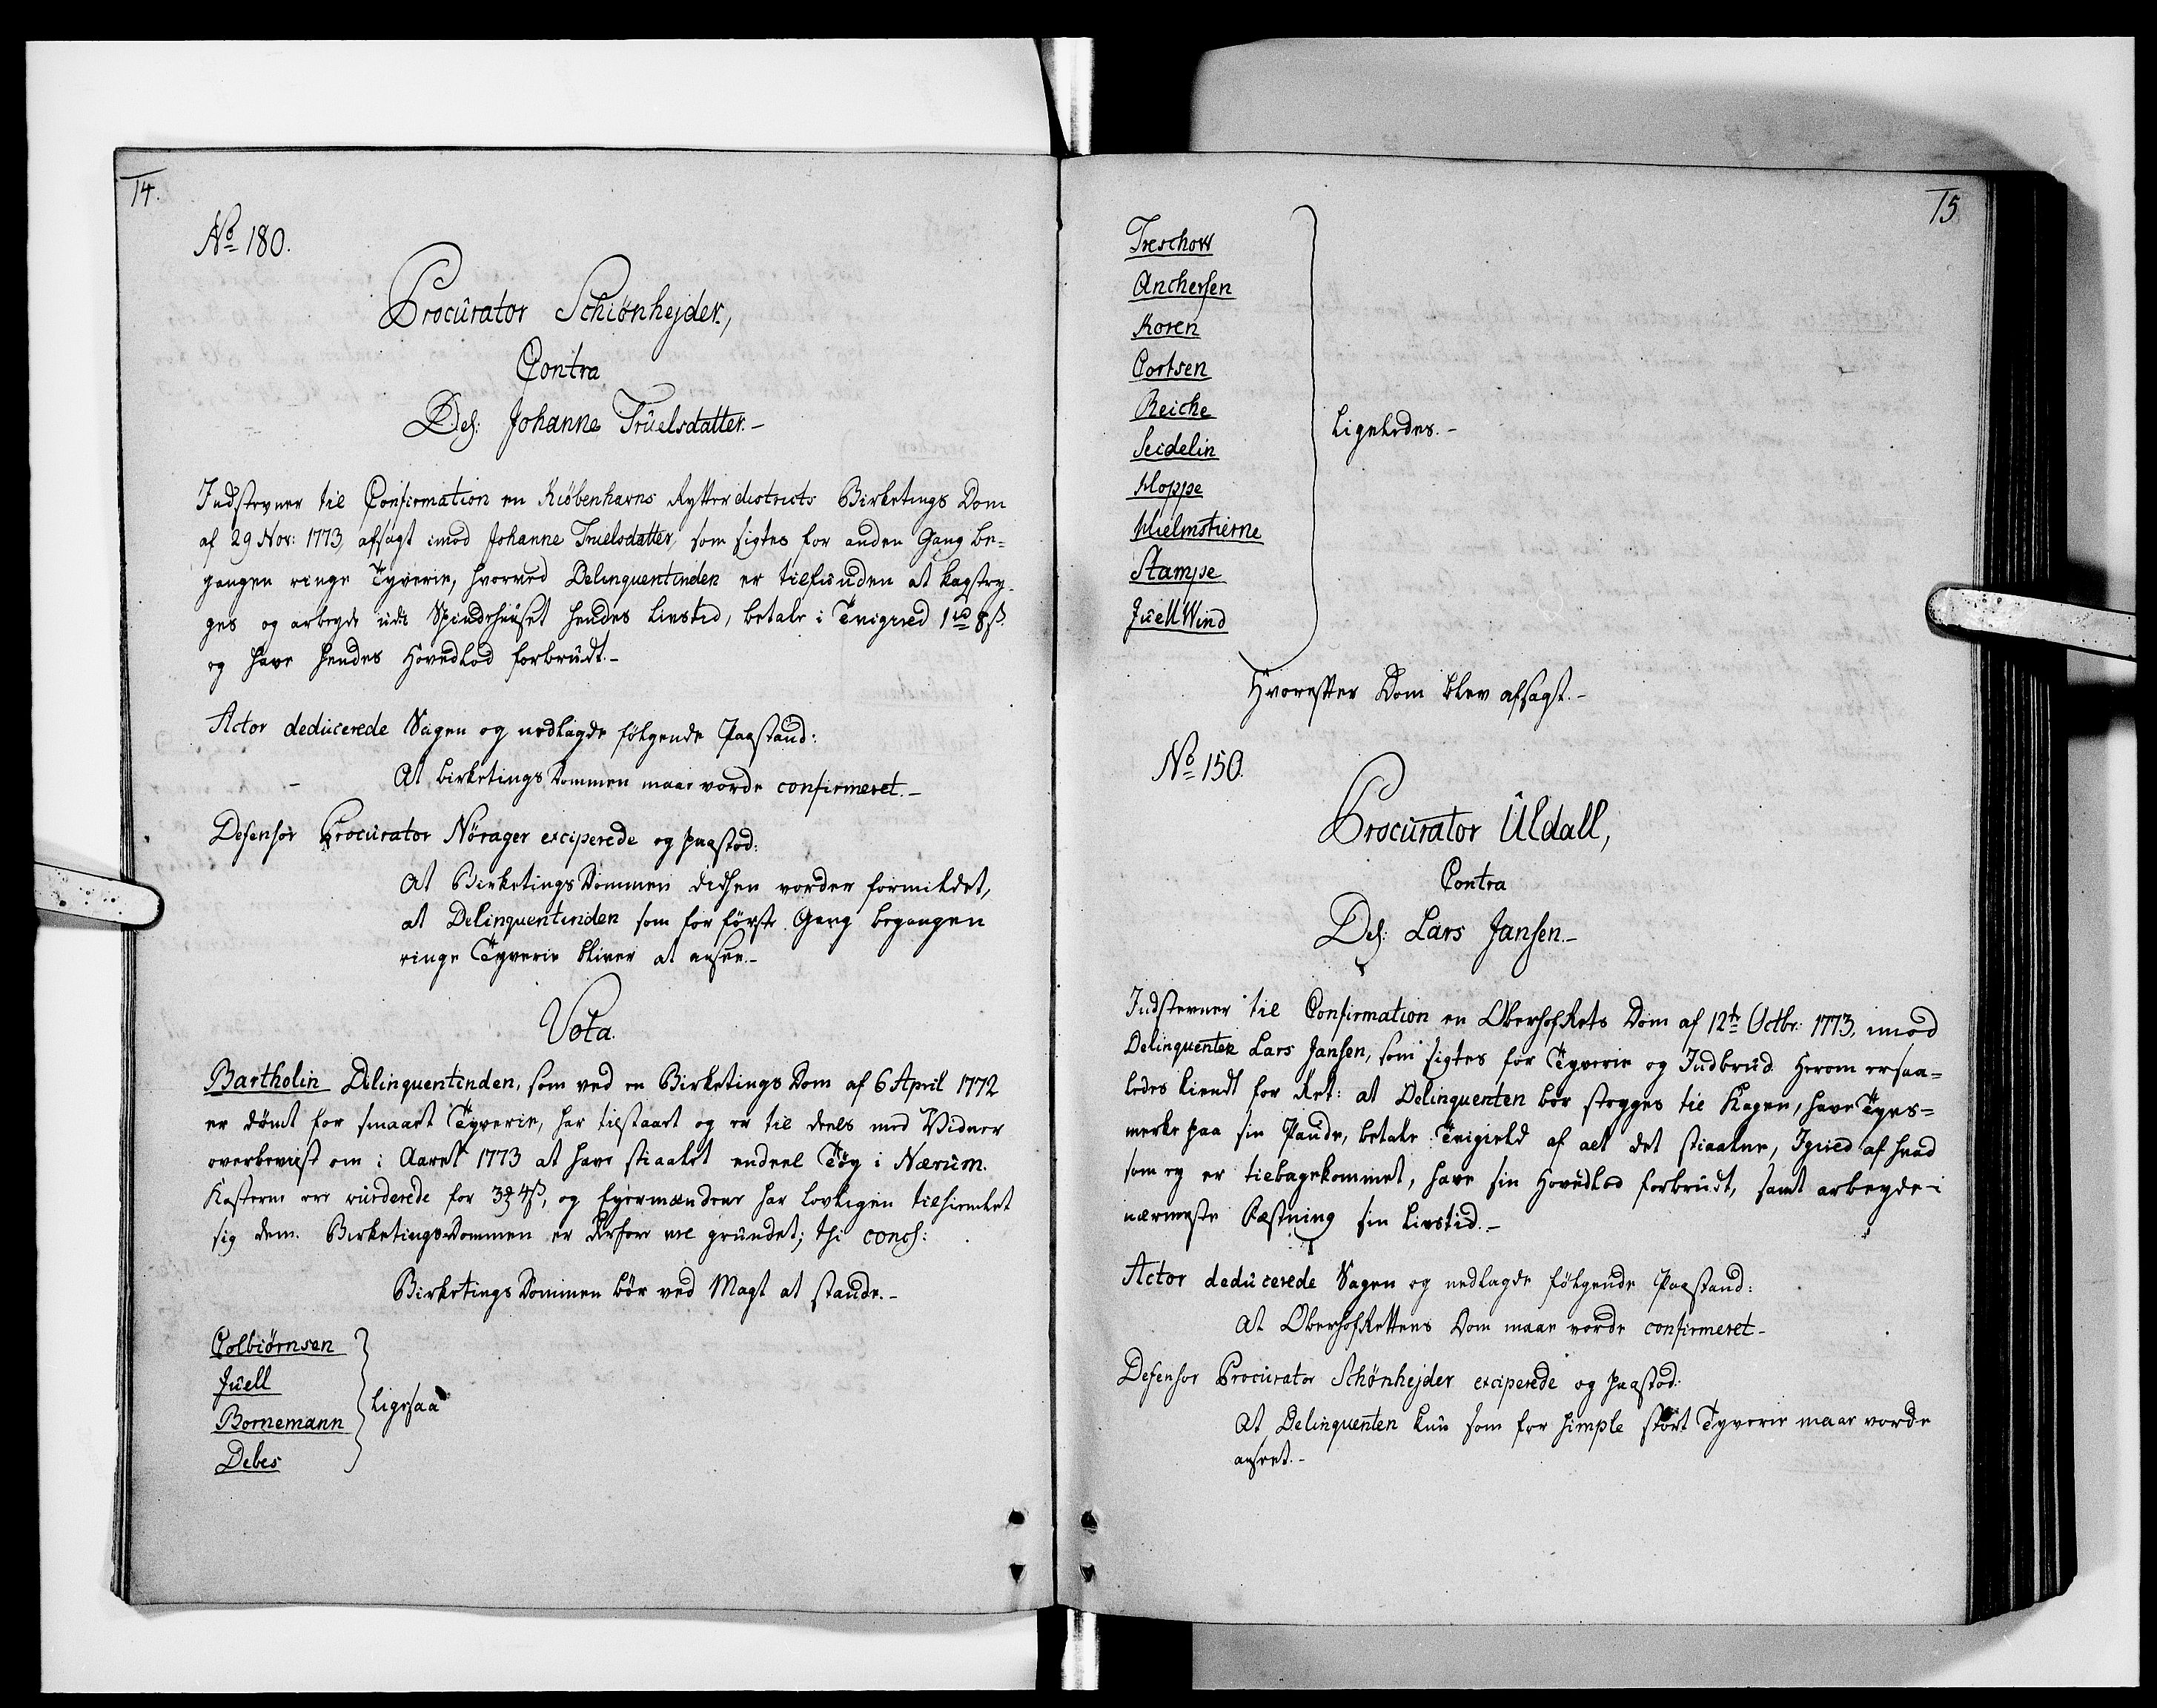 14.
No 180.
Procurator Schiønhejder,
Contra
Del: Johanne Truelsdatter.-
Indstevner til Confirmation en Kiøbenhavns Rytterdistricts Birketings Dom
af 29 Nov: 1773, afsagt imod Johanne Truelsdatter, som sigtes for anden Gang be=
gangen ringe Tyverie, hvorved Delinquentinden er tilfunden at kagstry-
ges og arbeyde udi Spindehuuset hendes Livstid, betale i Tvigield 8 ß.
og have hendes Hovedlod forbrudt.-
Actor deducerede Sagen og nedlagde følgende Paastand:
At Birketings Dommen maae vorde confirmeret.-
Defensor Procurator Nørager exciperede og paastod:
At Birketings Dommen vorder formildet,
at Delinquentinden som for første Gang begangen
ringe Tyverie bliver at ansee.-
Vota.
Bartholin Delinquentinden, som ved en Birketings Dom af 6 April 1772
er dømt for smaaet Tyverie, har tilstaaet og er til deels med Vidner
overbeviist om i Aaret 1773 at have stiaalet endeel Tøy i Nærum.
Kosterne ere vurderede for 3 4 ß, og Eyermændene har lovligen tilhiemlet
sig dem. Birketings Dommen er derfore vel grundet; thi concl:
Birketings Dommen bør ved Magt at stande.-
Colbiørnsen
Juell
Bornemann
Debes
Ligesaa
15
Treschow
Anchersen
Koren
Cortsen
Reiche
Seidelin
Hoppe
Hielmstierne
Stampe
Juell Wind
Ligeledes.-
Hvorefter Dom blev afsagt.-
No 150.
Procurator Uldall,
Contra
Del: Lars Jansen.-
Indstevner til Confirmation en OberhofRets Dom af 12te Octbr: 1773, imod
Delinquenten Lars Jansen, som sigtes for Tyverie og Indbrud. Herom er saa=
ledes kiendt for Ret: at Delinquenten bør stryges til Kagen, have Tyvs=
merke paa sin Pande, betale Tvigield af alt det stiaalne, Igield af hvad
som ey er tilbagekommet, have sin Hovedlod forbrudt, samt arbeyde i
nærmeste Fæstning sin Livstid.-
Actor deducerede Sagen og nedlagde følgende Paastand:
At OberhofRettens Dom maae vorde confirmeret-
Defensor Procurator Schønhejder exciperede og paastod:
At Delinquenten kun som for simple stort Tyverie maae vorde
anseet.-